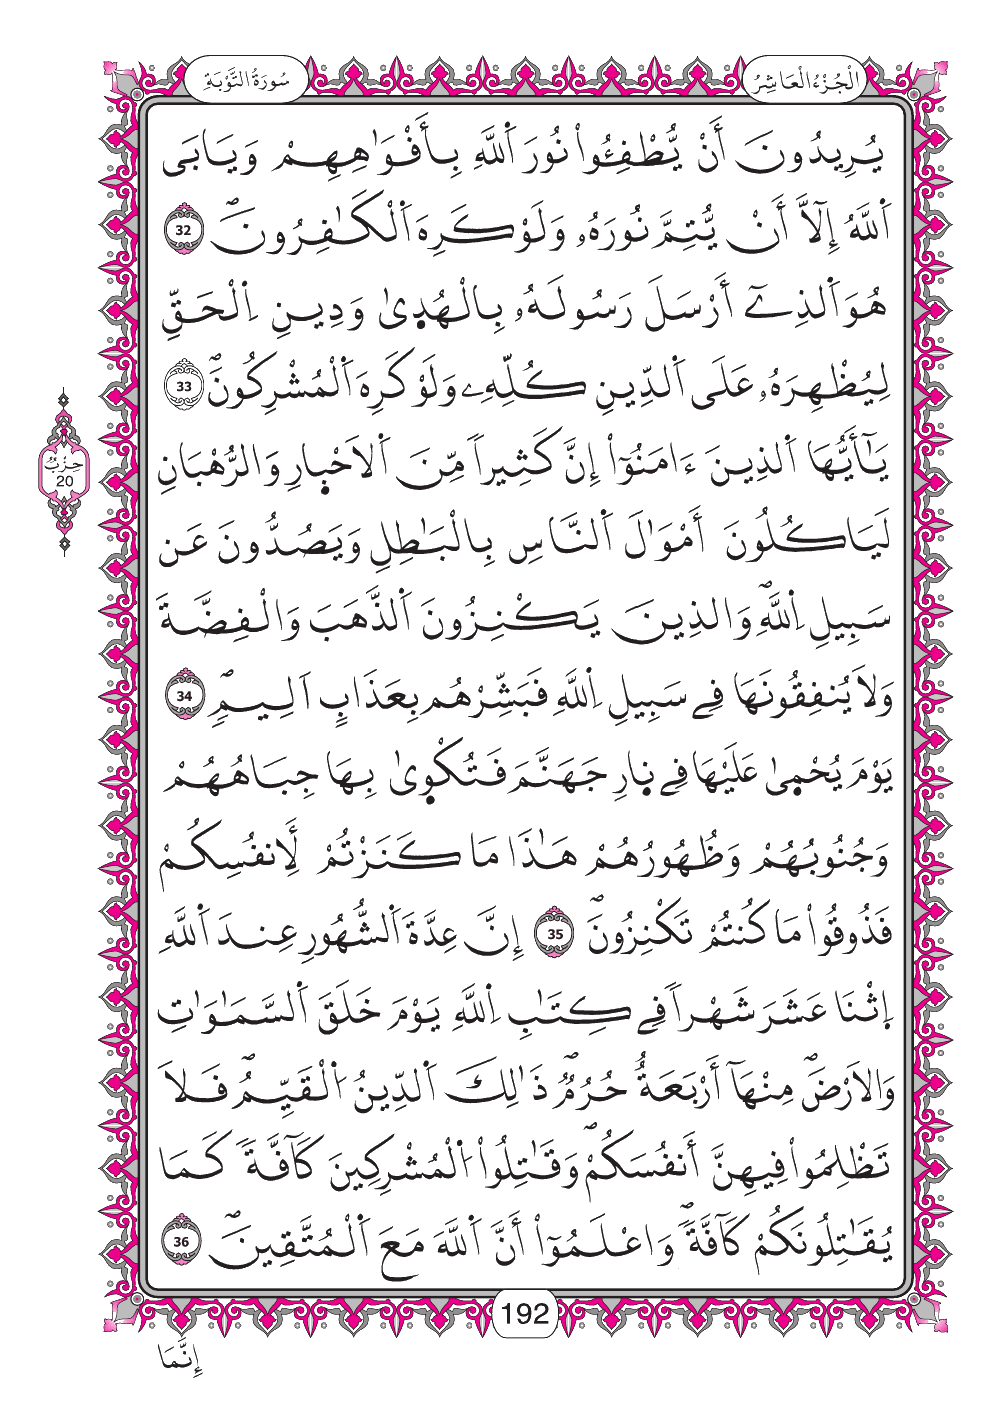 الْجُزْءُ الْعَاشِرُ
سُورَةُ التَّوْبَةِ
يُرِيدُونَ أَنْ يُّطْفِـُٔواْ نُورَ اَ۬للَّهِ بِأَفْوَٰهِهِمْ وَيَابَى
اَ۬للَّهُ إِلَّآ أَنْ يُّتِمَّ نُورَهُۥ وَلَوْ كَرِهَ اَ۬لْكَٰفِرُونَۖ 32
هُوَ اَ۬لذِےٓ أَرْسَلَ رَسُولَهُۥ بِالْهُد۪ىٰ وَدِينِ اِ۬لْحَقِّ
لِيُظْهِرَهُۥ عَلَى اَ۬لدِّينِ كُلِّهِۦ وَلَوْ كَرِهَ اَ۬لْمُشْرِكُونَۖ 33
حِزْبٌ
20
يَٰٓأَيُّهَا اَ۬لذِينَ ءَامَنُوٓاْ إِنَّ كَثِيراٗ مِّنَ اَ۬لَاحْب۪ارِ وَالرُّهْبَانِ
لَيَاكُلُونَ أَمْوَٰلَ اَ۬لنَّاسِ بِالْبَٰطِلِ وَيَصُدُّونَ عَن
سَبِيلِ اِ۬للَّهِۖ وَالذِينَ يَكْنِزُونَ اَ۬لذَّهَبَ وَالْفِضَّةَ
وَلَا يُنفِقُونَهَا فِے سَبِيلِ اِ۬للَّهِ فَبَشِّرْهُم بِعَذَابٍ اَلِيمٖۖ 34
يَوْمَ يُحْم۪ىٰ عَلَيْهَا فِے ن۪ارِ جَهَنَّمَ فَتُكْو۪ىٰ بِهَا جِبَاهُهُمْ
وَجُنُوبُهُمْ وَظُهُورُهُمْ هَٰذَا مَا كَنَزْتُمْ لِأَنفُسِكُمْ
فَذُوقُواْ مَا كُنتُمْ تَكْنِزُونَۖ 35 إِنَّ عِدَّةَ اَ۬لشُّهُورِ عِندَ اَ۬للَّهِ
اِ۪ثْنَا عَشَرَ شَهْراٗ فِے كِتَٰبِ اِ۬للَّهِ يَوْمَ خَلَقَ اَ۬لسَّمَٰوَٰتِ
وَالَارْضَۖ مِنْهَآ أَرْبَعَةٌ حُرُمٞۖ ذَٰلِكَ اَ۬لدِّينُ اُ۬لْقَيِّمُۖ فَلَا
تَظْلِمُواْ فِيهِنَّ أَنفُسَكُمْۖ وَقَٰتِلُواْ اُ۬لْمُشْرِكِينَ كَآفَّةٗ كَمَا
يُقَٰتِلُونَكُمْ كَآفَّةٗۖ وَاعْلَمُوٓاْ أَنَّ اَ۬للَّهَ مَعَ اَ۬لْمُتَّقِينَۖ 36
192
إِنَّمَا